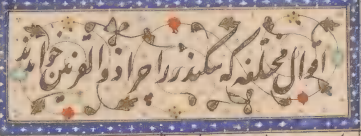 اقوال مختلفه که سکندر را چرا ذو القرنین خوانند